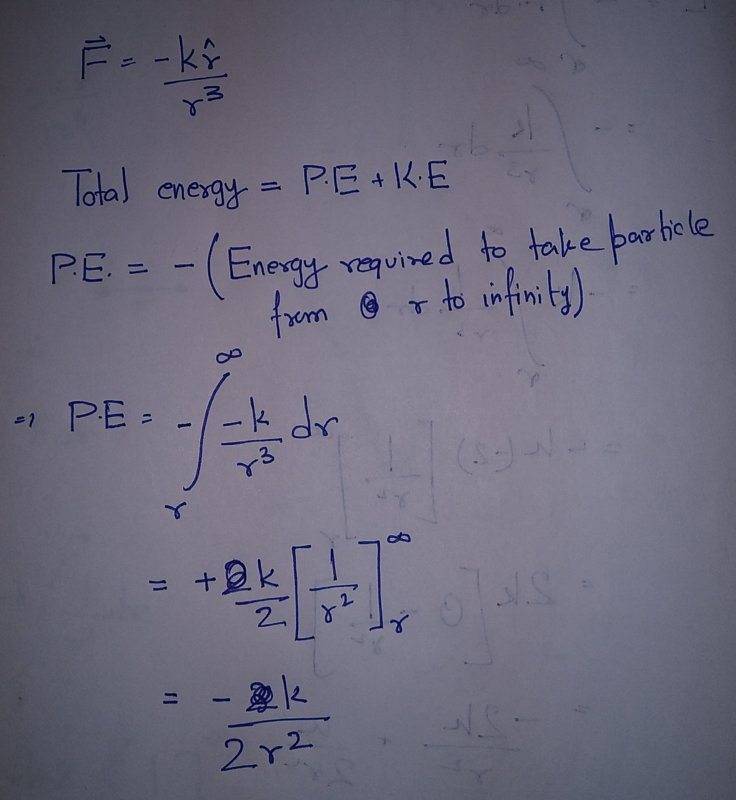 F⃗ = -k r̂ / r³
Total energy = P.E + K.E
P.E. = - (Energy required to take particle
from r to infinity)
⇒ P.E = - ∫_r^∞ -k/r³ dr
= + k/2 [1/r²]_r^∞
= - k / 2r²